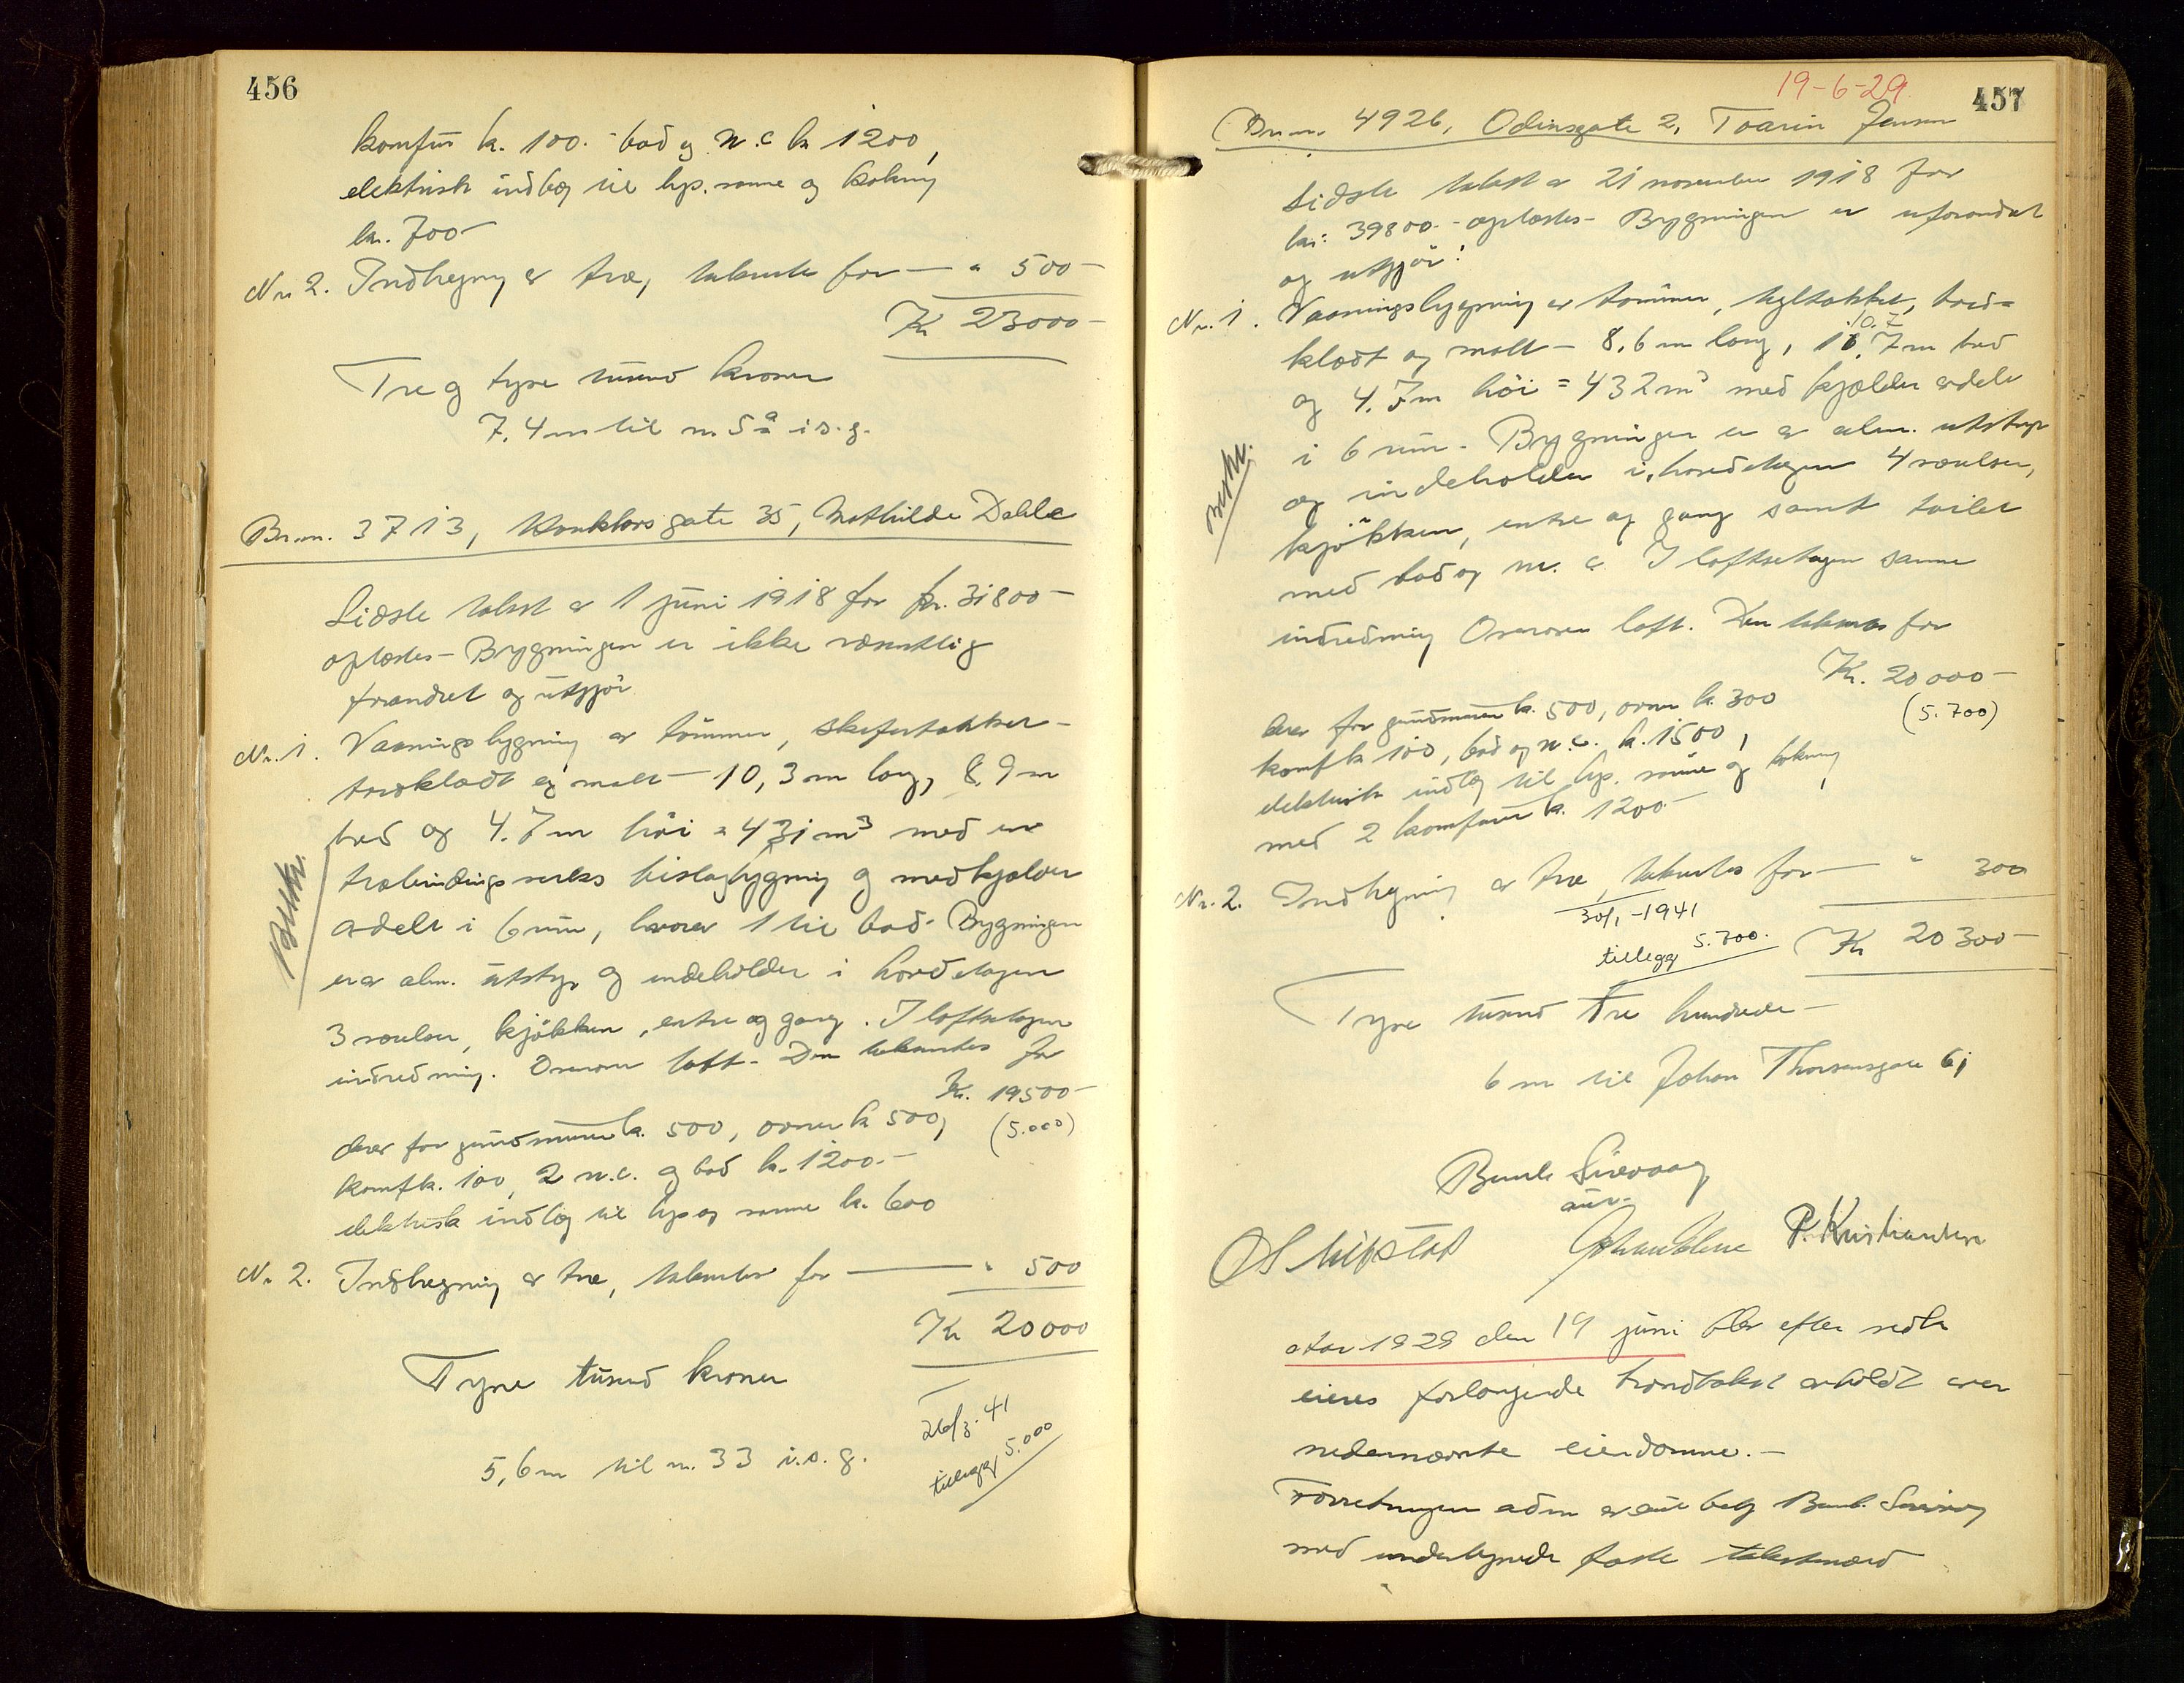 456
komfür kr. 100.- bad og W.C kr 1200,
elektrisk indlæg til lys. varme og kokning
kr. 700-
Nr. 2. Indhegning av træ, takseres for — " 500-
Kr 23000-
Tre og tyve tusend kroner
7.4 m til nr. 5a i s. g.
Br.nr. 3713, gate 35, Mathilde Dahle
Sidste takst av 1 juni 1918 for kr. 31800-
oplæstes- Bygningen er ikke væsentlig
forandret og utgjör
Nr. 1. Vaaningsbygning av tömmer, skifertakket-
bordklædt og malt - 10,3 m lang, 8,9 m
bred og 4.7 m höi = 431 m³ med en
træbindingsverks bislagbygning og med kjælder
avdelt i 6 rüm, hvorav 1 til bad- Bygningen
er av alm. utstyr og indeholder i hovedetagen
3 værelser, kjökken, entre og gang. I loftsetagen
indredning. Ovenover loft- Den takseres for
Kr. 19500-
derav for grundmuren kr. 500, ovner kr 500,
(5.000)
komf kr. 100, 2 W.C. og bad kr. 1200.-
elektrisk indlæg til lys og varme kr. 600
Nr. 2. Indhegning av træ, takseres for — " 500
Kr 20000
Tyve tusend kroner
26/3. 41
tillegg 5.000
5,6 m til nr. 33 i. s. g.
Besikt.
19-6-29.
457
Br.nr. 4926, Odinsgate 2, Jensen
Sidste takst av 21 november 1918 for
kr: 39800.- oplæstes- Bygningen er uforandret
og utgjör:
Nr. 1. Vaaningsbygning av tömmer, tegltakket, bord=
10.7
klædt og malt - 8,6 m lang, 10.7 m bred
og 4.7 m höi = 432 m³ med kjælder avdelt
i 6 rüm. Bygningen er av alm. utstyr
og indeholder i hovedetagen 4 værelser,
kjökken, entre og gang samt toilet
med bad og W. C. I loftsetagen samme
indredning Ovenover loft. Den takseres for
Kr. 20000-
derav for grundmuren kr. 500, ovner kr. 300
(5.700)
komf kr 100, bad og W.C. kr. 1500,
elektrisk indlæg til lys. varme og kokning
med 2 komfurer kr. 1200-
Nr. 2. Indhegning av træ, takseres for — " 300
30/1-1941
tillegg 5.700.
Kr 20300-
Tyve tusend tre hundrede-
6 m til Johan Thorsensgate 61
Besikt.
Berel Sirevaag
P. Kristiansen
Aar 1929 den 19 juni blev efter vedk
eieres forlangende brandtakst avholdt over
nedennævnte eiendomme.-
Forretningen adm av Berel. Sirevaag
med undertegnede faste takstmænd